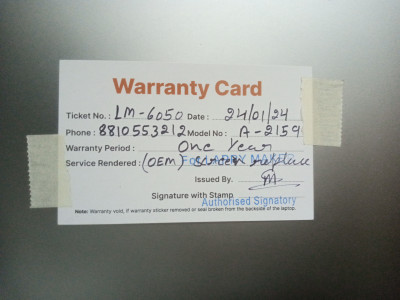 Warranty Card
Ticket No. : LM-6050 Date : 24/01/24
Phone : 8810553212 Model No : A-2159
Warranty Period : One Year
Service Rendered : (OEM) Screen replace
For LAPPY MAKER
Issued By.
Signature with Stamp
Authorised Signatory
Note: Warranty void, if warranty sticker removed or seal broken from the backside of the laptop.